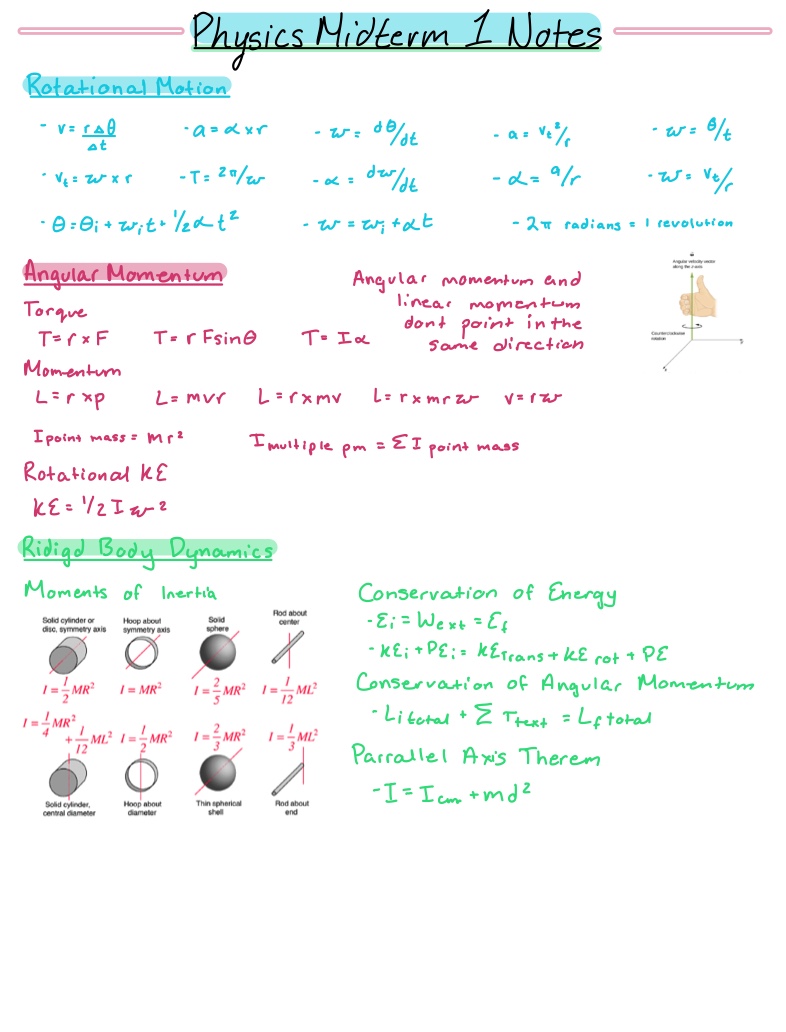 Physics Midterm 1 Notes
Rotational Motion
- v = rΔθ/Δt - a = α x r - w = dθ/dt - a = vt²/r - w = θ/t
- vt = w x r - T = 2π/w - α = dw/dt - α = a/r - w = vt/r
- θ = θi + wit + 1/2αt² - w = wi + αt - 2π radians = 1 revolution
Angular Momentum
Angular momentum and
linear momentum
dont point in the
same direction
Angular velocity vector
along the z-axis
Counterclockwise
rotation
Torque
T = r x F T = r F sinθ T = Iα
Momentum
L = r x p L = mvr L = r x mv L = r x mrw v = rw
I point mass = mr² I multiple pm = Σ I point mass
Rotational KE
KE = 1/2 I w²
Ridigd Body Dynamics
Moments of Inertia
Solid cylinder or
disc, symmetry axis
Hoop about
symmetry axis
Solid
sphere
Rod about
center
I = 1/2 MR² I = MR² I = 2/5 MR² I = 1/12 ML²
I = 1/4 MR² + 1/12 ML² I = 1/2 MR² I = 2/3 MR² I = 1/3 ML²
Solid cylinder,
central diameter
Hoop about
diameter
Thin spherical
shell
Rod about
end
Conservation of Energy
- Ei = Wext = Ef
- KEi + PEi = KETrans + KE rot + PE
Conservation of Angular Momentum
- Li total + Σ Ttext = Lf total
Parrallel Axis Therem
- I = Icm + md²